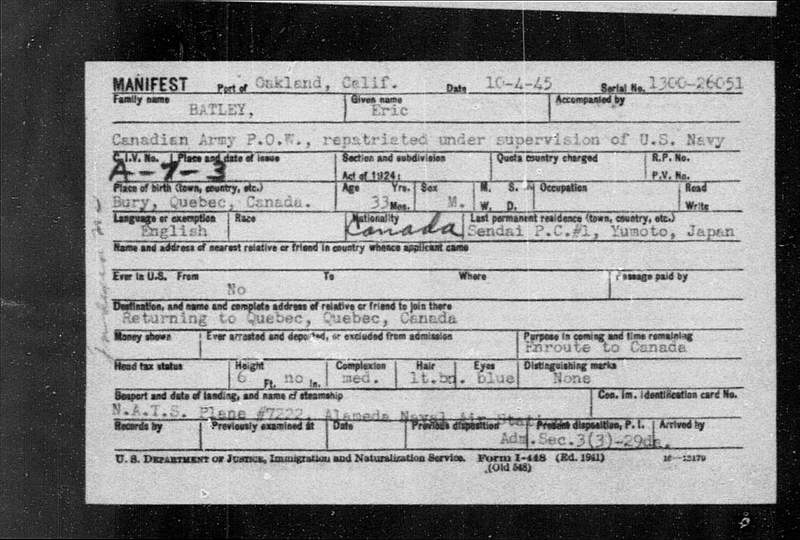 MANIFEST Port of Oakland, Calif. Date 10-4-45 Serial No. 1300-26051
Family name Given name Accompanied by
BATLEY, Eric
Canadian Army P.O.W., repatriated under supervision of U.S. Navy
C.I.V. No. Place and date of issue Section and subdivision Quota country charged R.P. No.
A-7-3 Act of 1924: P.V. No.
Place of birth (town, country, etc.) Age Yrs. Sex M. S. Occupation Read
Bury, Quebec, Canada. 33 Mos. M. W. D. Write
Language or exemption Race Nationality Last permanent residence (town, country, etc.)
English Canada Sendai P.C.#1, Yumoto, Japan
Name and address of nearest relative or friend in country whence applicant came
Ever in U.S. From To Where Passage paid by
No
Destination, and name and complete address of relative or friend to join there
Returning to Quebec, Quebec, Canada
Money shown Ever arrested and deported, or excluded from admission Purpose in coming and time remaining
Enroute to Canada
Head tax status Height Complexion Hair Eyes Distinguishing marks
6 Ft. no In. med. lt.bn. blue None
Seaport and date of landing, and name of steamship Con. Im. Identification card No.
N.A.T.S. Plane #7222, Alameda Naval Air
Records by Previously examined at Date Previous disposition Present disposition, P. I. Arrived by
Adm.Sec.3(3)-29da.
U. S. DEPARTMENT OF JUSTICE, Immigration and Naturalization Service. Form I-448 (Ed. 1941) 16—13179
(Old 548)